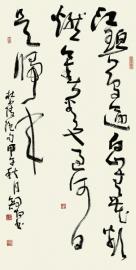 江碧鳥逾白山青花欲
燃今春看又過何日
是歸年
絕句甲午秋月